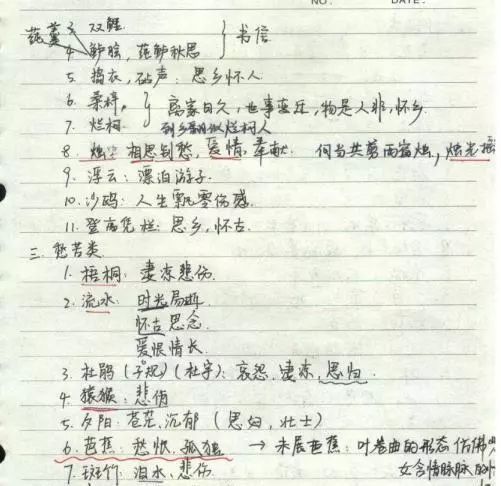 NO. DATE.
莼羹 3. 双鲤 } 书信
4. 鲈脍, 莼鲈秋思
5. 捣衣, 砧声: 思乡怀人
6. 桑梓, } 离家日久, 世事变迁, 物是人非, 怀乡
7. 烂柯 到乡翻似烂柯人
8. 烛: 相思别愁, 爱情, 奉献. 何当共剪西窗烛, 烛光摇
9. 浮云: 漂泊游子.
10. 沙鸥: 人生飘零伤感.
11. 登高凭栏: 思乡, 怀古.
三. 愁苦类
1. 梧桐: 凄凉悲伤.
2. 流水: 时光易逝
怀古思念.
爱恨情长.
3. 杜鹃 (子规) (杜宇): 哀怨, 凄凉, 思归.
4. 猿猴: 悲伤
5. 夕阳: 苍茫, 沉郁 (思妇, 壮士)
6. 芭蕉: 愁恨, 孤独 → 未展芭蕉: 叶卷曲的形态仿佛
7. 斑竹: 泪水, 悲伤. 女含情脉脉的